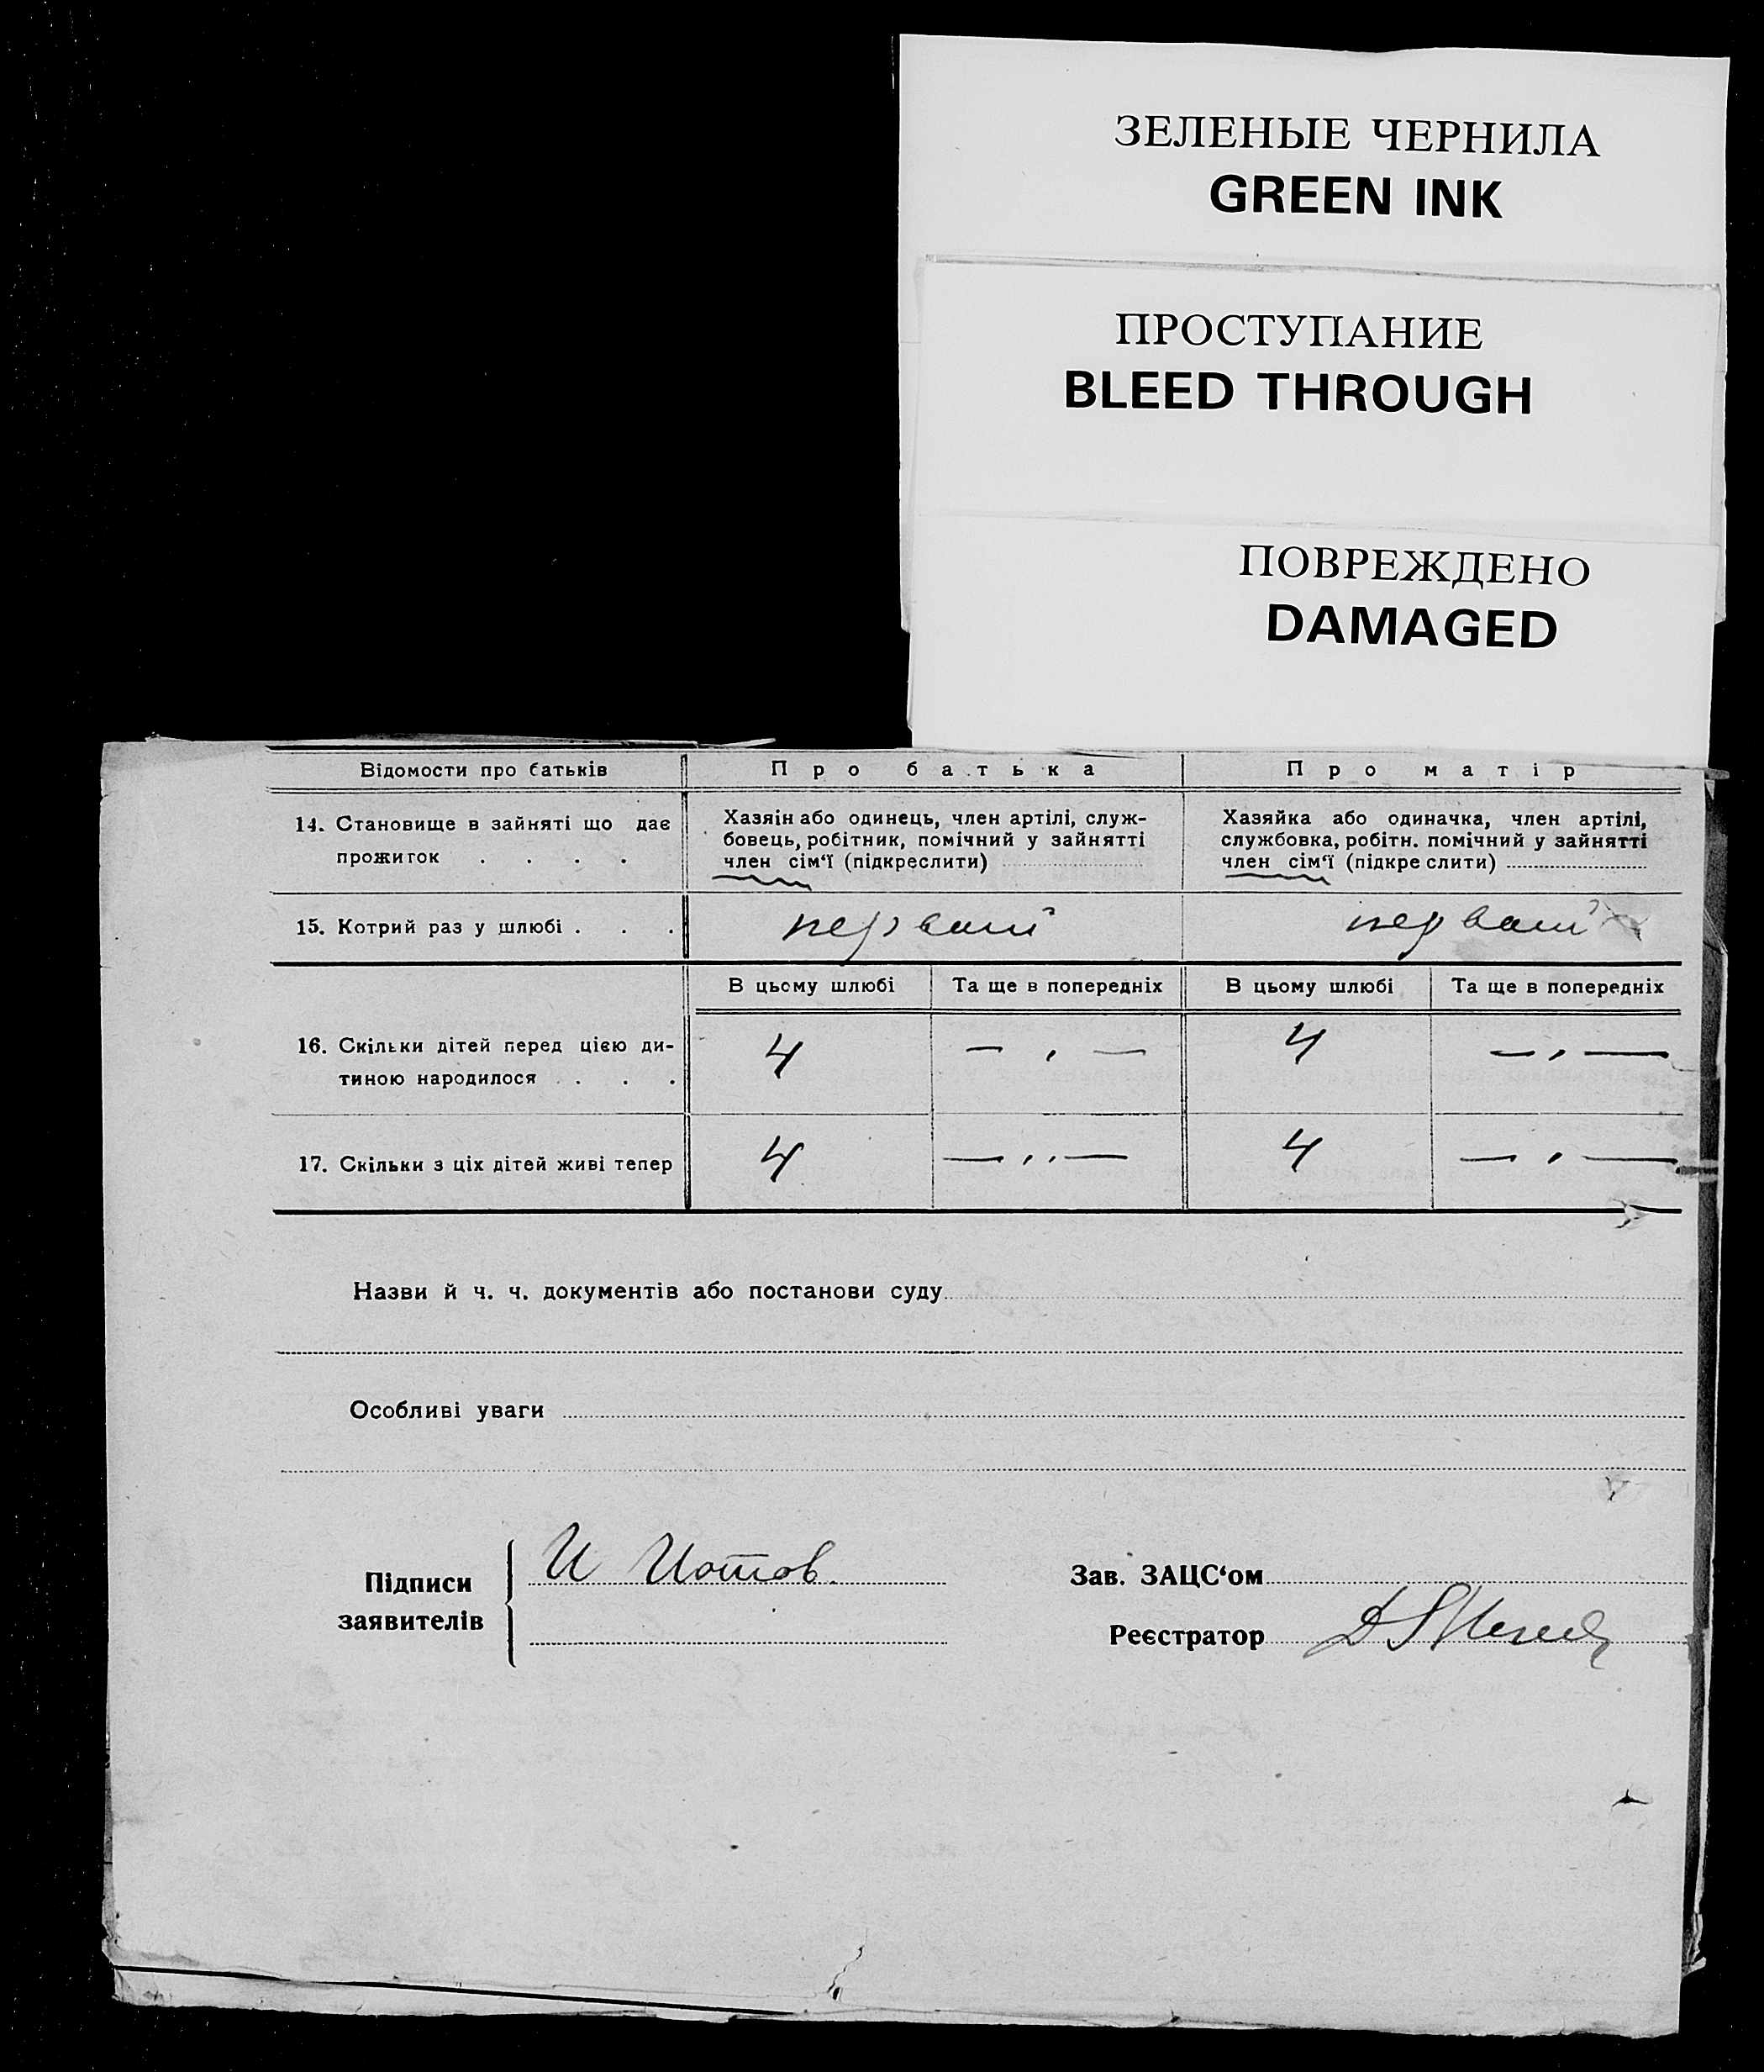 ЗЕЛЕНЫЕ ЧЕРНИЛА
GREEN INK
ПРОСТУПАНИЕ
BLEED THROUGH
ПОВРЕЖДЕНО
DAMAGED
Відомости про батьків
Про батька
Про матір
14. Становище в зайняті що дає
прожиток . . . .
Хазяін або одинець, член артілі, служ-
бовець, робітник, помічний у зайнятті
член сім‘ї (підкреслити)
Хазяйка або одиначка, член артілі,
службовка, робітн. помічний у зайнятті
член сім‘ї (підкреслити)
15. Котрий раз у шлюбі . . .
первий
первий
В цьому шлюбі
Та ще в попередніх
В цьому шлюбі
Та ще в попередніх
16. Скільки дітей перед цією ди-
тиною народилося . . . .
4
— , —
4
— , —
17. Скільки з ціх дітей живі тепер
4
— ,,, —
4
— , —
Назви й ч. ч. документів або постанови суду
Особливі уваги
Підписи
заявителів
И Иотов
Зав. ЗАЦС‘ом
Реєстратор